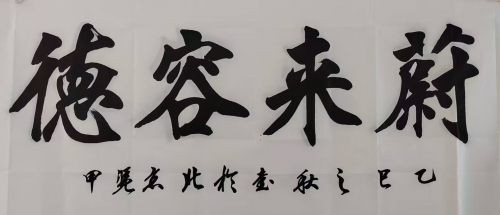 蔚来容德
乙巳之秋書於北京甲